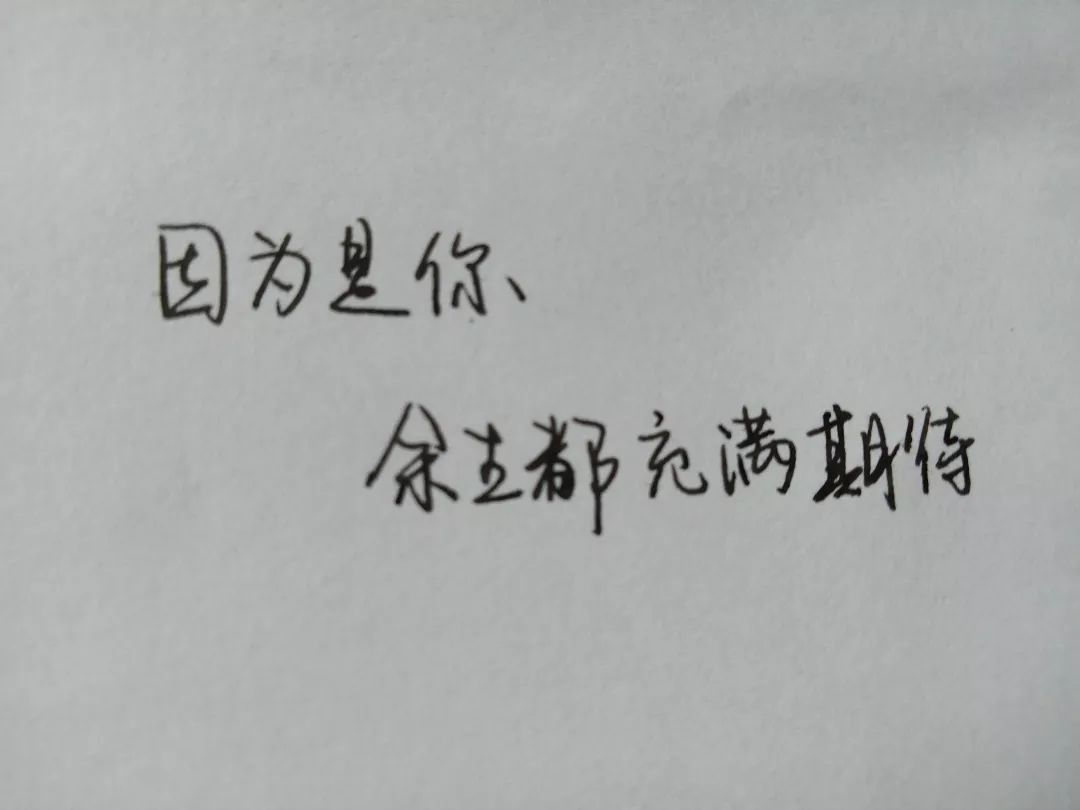 因为是你、
余生都充满期待